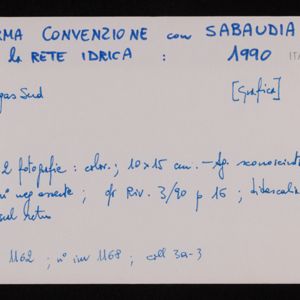 RMA CONVENZIONE con SABAUDIA
la RETE IDRICA : 1990
ITA
gas Sud [Grafica]
2 fotografie : color. ; 10x15 cm. - Ag. sconosciut
n° neg assente ; cfr Riv. 3/90 p 16 ; didascalia
sul retro
1162 ; n° inv 1168 ; coll 3a-3